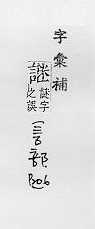 字彙補
謎 謎字之誤
(言部
B06